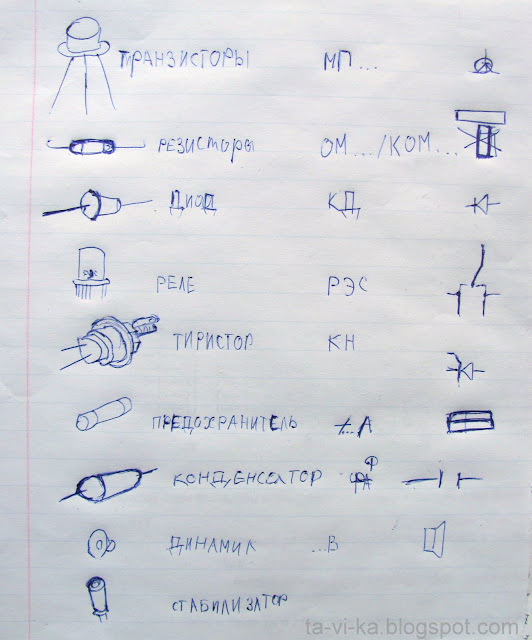 ТРАНЗИСТОРЫ МП...
РЕЗИСТОРЫ ОМ.../КОМ...
ДИОД КД
РЕЛЕ РЭС
ТИРИСТОР КН
ПРЕДОХРАНИТЕЛЬ ...А
КОНДЕНСАТОР Ф
ДИНАМИК ...В
СТАБИЛИЗАТОР
ta-vi-ka.blogspot.com